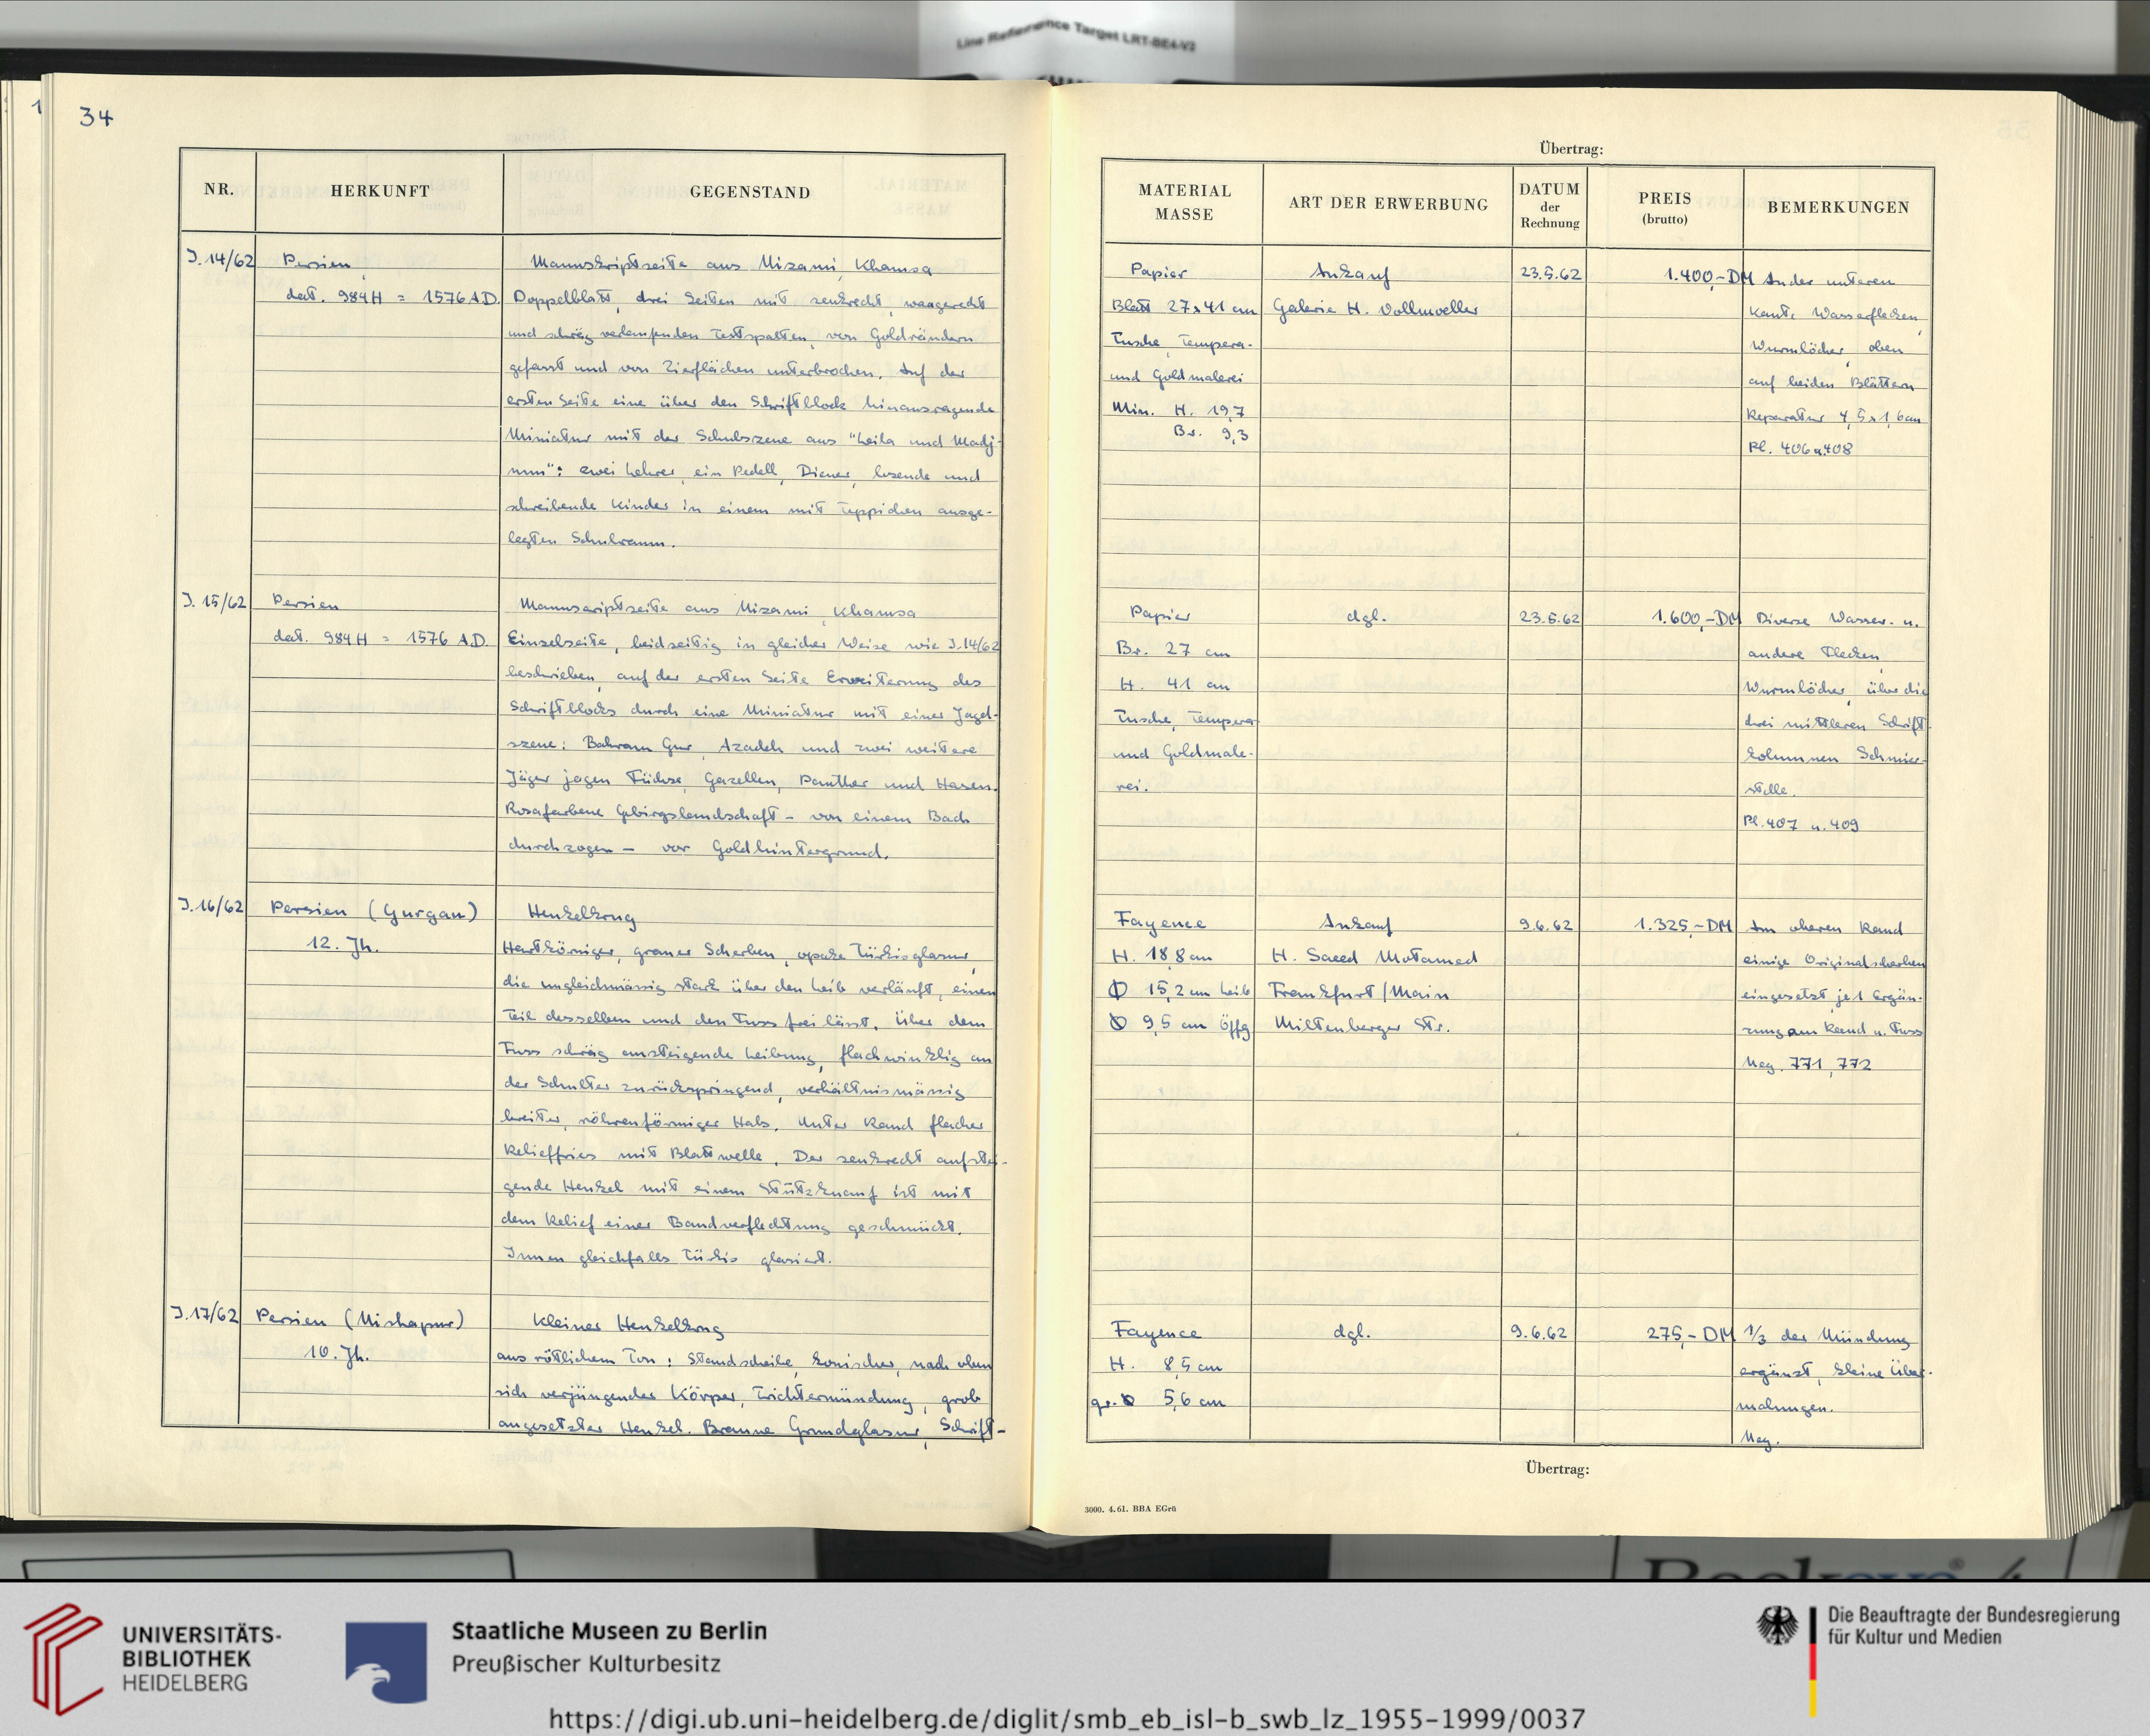 Line Reference Target LRT-BE4-V2
34
NR.
HERKUNFT
GEGENSTAND
J. 14/62
Persien,
dat. 984 H = 1576 A.D.
Manuskriptseite aus Nizami, Khamsa
Doppelblatt, drei Seiten mit senkrecht, waagerecht
und schräg verlaufenden Textspalten, von Goldrändern
gefasst und von Zierflächen unterbrochen. Auf der
ersten Seite eine über den Schriftblock hinausragende
Miniatur mit der Schulszene aus "Leila und Madj-
nun": zwei Lehrer, ein Pedell, Diener, lesende und
schreibende Kinder in einem mit Teppichen ausge-
legten Schulraum.
J. 15/62
Persien
dat. 984 H = 1576 A.D.
Manuscriptseite aus Nizami, Khamsa
Einzelseite, beidseitig in gleicher Weise wie J.14/62
beschrieben, auf der ersten Seite Erweiterung des
Schriftblocks durch eine Miniatur mit einer Jagd-
szene: Bahram Gur, Azadeh und zwei weitere
Jäger jagen Füchse, Gazellen, Panther und Hasen.
Rosafarbene Gebirgslandschaft - von einem Bach
durchzogen - vor Goldhintergrund.
J. 16/62
Persien (Gurgan)
12. Jh.
Henkelkrug
Hartkörniger, grauer Scherben, opake Türkisglasur,
die ungleichmässig stark über den Leib verläuft, einen
Teil desselben und den Fuss frei lässt. Über dem
Fuss schräg ansteigende Leibung, flachwinklig an
der Schulter zurückspringend, verhältnismässig
breiter, röhrenförmiger Hals. Unter Rand flacher
Relieffries mit Blattwelle. Der senkrecht aufstei-
gende Henkel mit einem Stützknauf ist mit
dem Relief einer Bandverflechtung geschmückt.
Innen gleichfalls türkis glasiert.
J. 17/62
Persien (Nishapur)
10. Jh.
Kleiner Henkelkrug
aus rötlichem Ton: Standscheibe, konischer, nach oben
sich verjüngender Körper, Trichtermündung, grob
angesetzter Henkel. Braune Grundglasur, Schrift-
Übertrag:
MATERIAL
MASSE
ART DER ERWERBUNG
DATUM
der
Rechnung
PREIS
(brutto)
BEMERKUNGEN
Papier
Blatt 27 x 41 cm
Tusche, Tempera-
und Goldmalerei
Min. H. 19,7
Br. 9,3
Ankauf
Galerie H. Vollmoeller
23.5.62
1.400,-DM
An der unteren
Kante Wasserflecken,
Wurmlöcher, oben
auf beiden Blättern
Reparatur 4,5 x 1,6 cm
Pl. 406 u. 408
Papier
Br. 27 cm
H. 41 cm
Tusche, Tempera
und Goldmale-
rei.
dgl.
23.5.62
1.600,-DM
Diverse Wasser- u.
andere Flecken,
Wurmlöcher, über die
drei mittleren Schrift-
kolumnen Schmier-
stelle.
Pl. 407 u. 409
Fayence
H. 18,8 cm
Ø 15,2 cm Leib
Ø 9,5 cm Öffg
Ankauf
H. Saeed Motamed
Frankfurt/Main
Miltenberger Str.
9.6.62
1.325,-DM
Am oberen Rand
einige Originalscherben
eingesetzt, je 1 Ergän-
zung am Rand u. Fuss
Neg. 771, 772
Fayence
H. 8,5 cm
gr. Ø 5,6 cm
dgl.
9.6.62
275,- DM
1/3 der Mündung
ergänzt, kleine Über-
malungen.
Neg.
Übertrag:
3000. 4.61. BBA EGrü
UNIVERSITÄTS-
BIBLIOTHEK
HEIDELBERG
Staatliche Museen zu Berlin
Preußischer Kulturbesitz
Die Beauftragte der Bundesregierung
für Kultur und Medien
https://digi.ub.uni-heidelberg.de/diglit/smb_eb_isl-b_swb_lz_1955-1999/0037